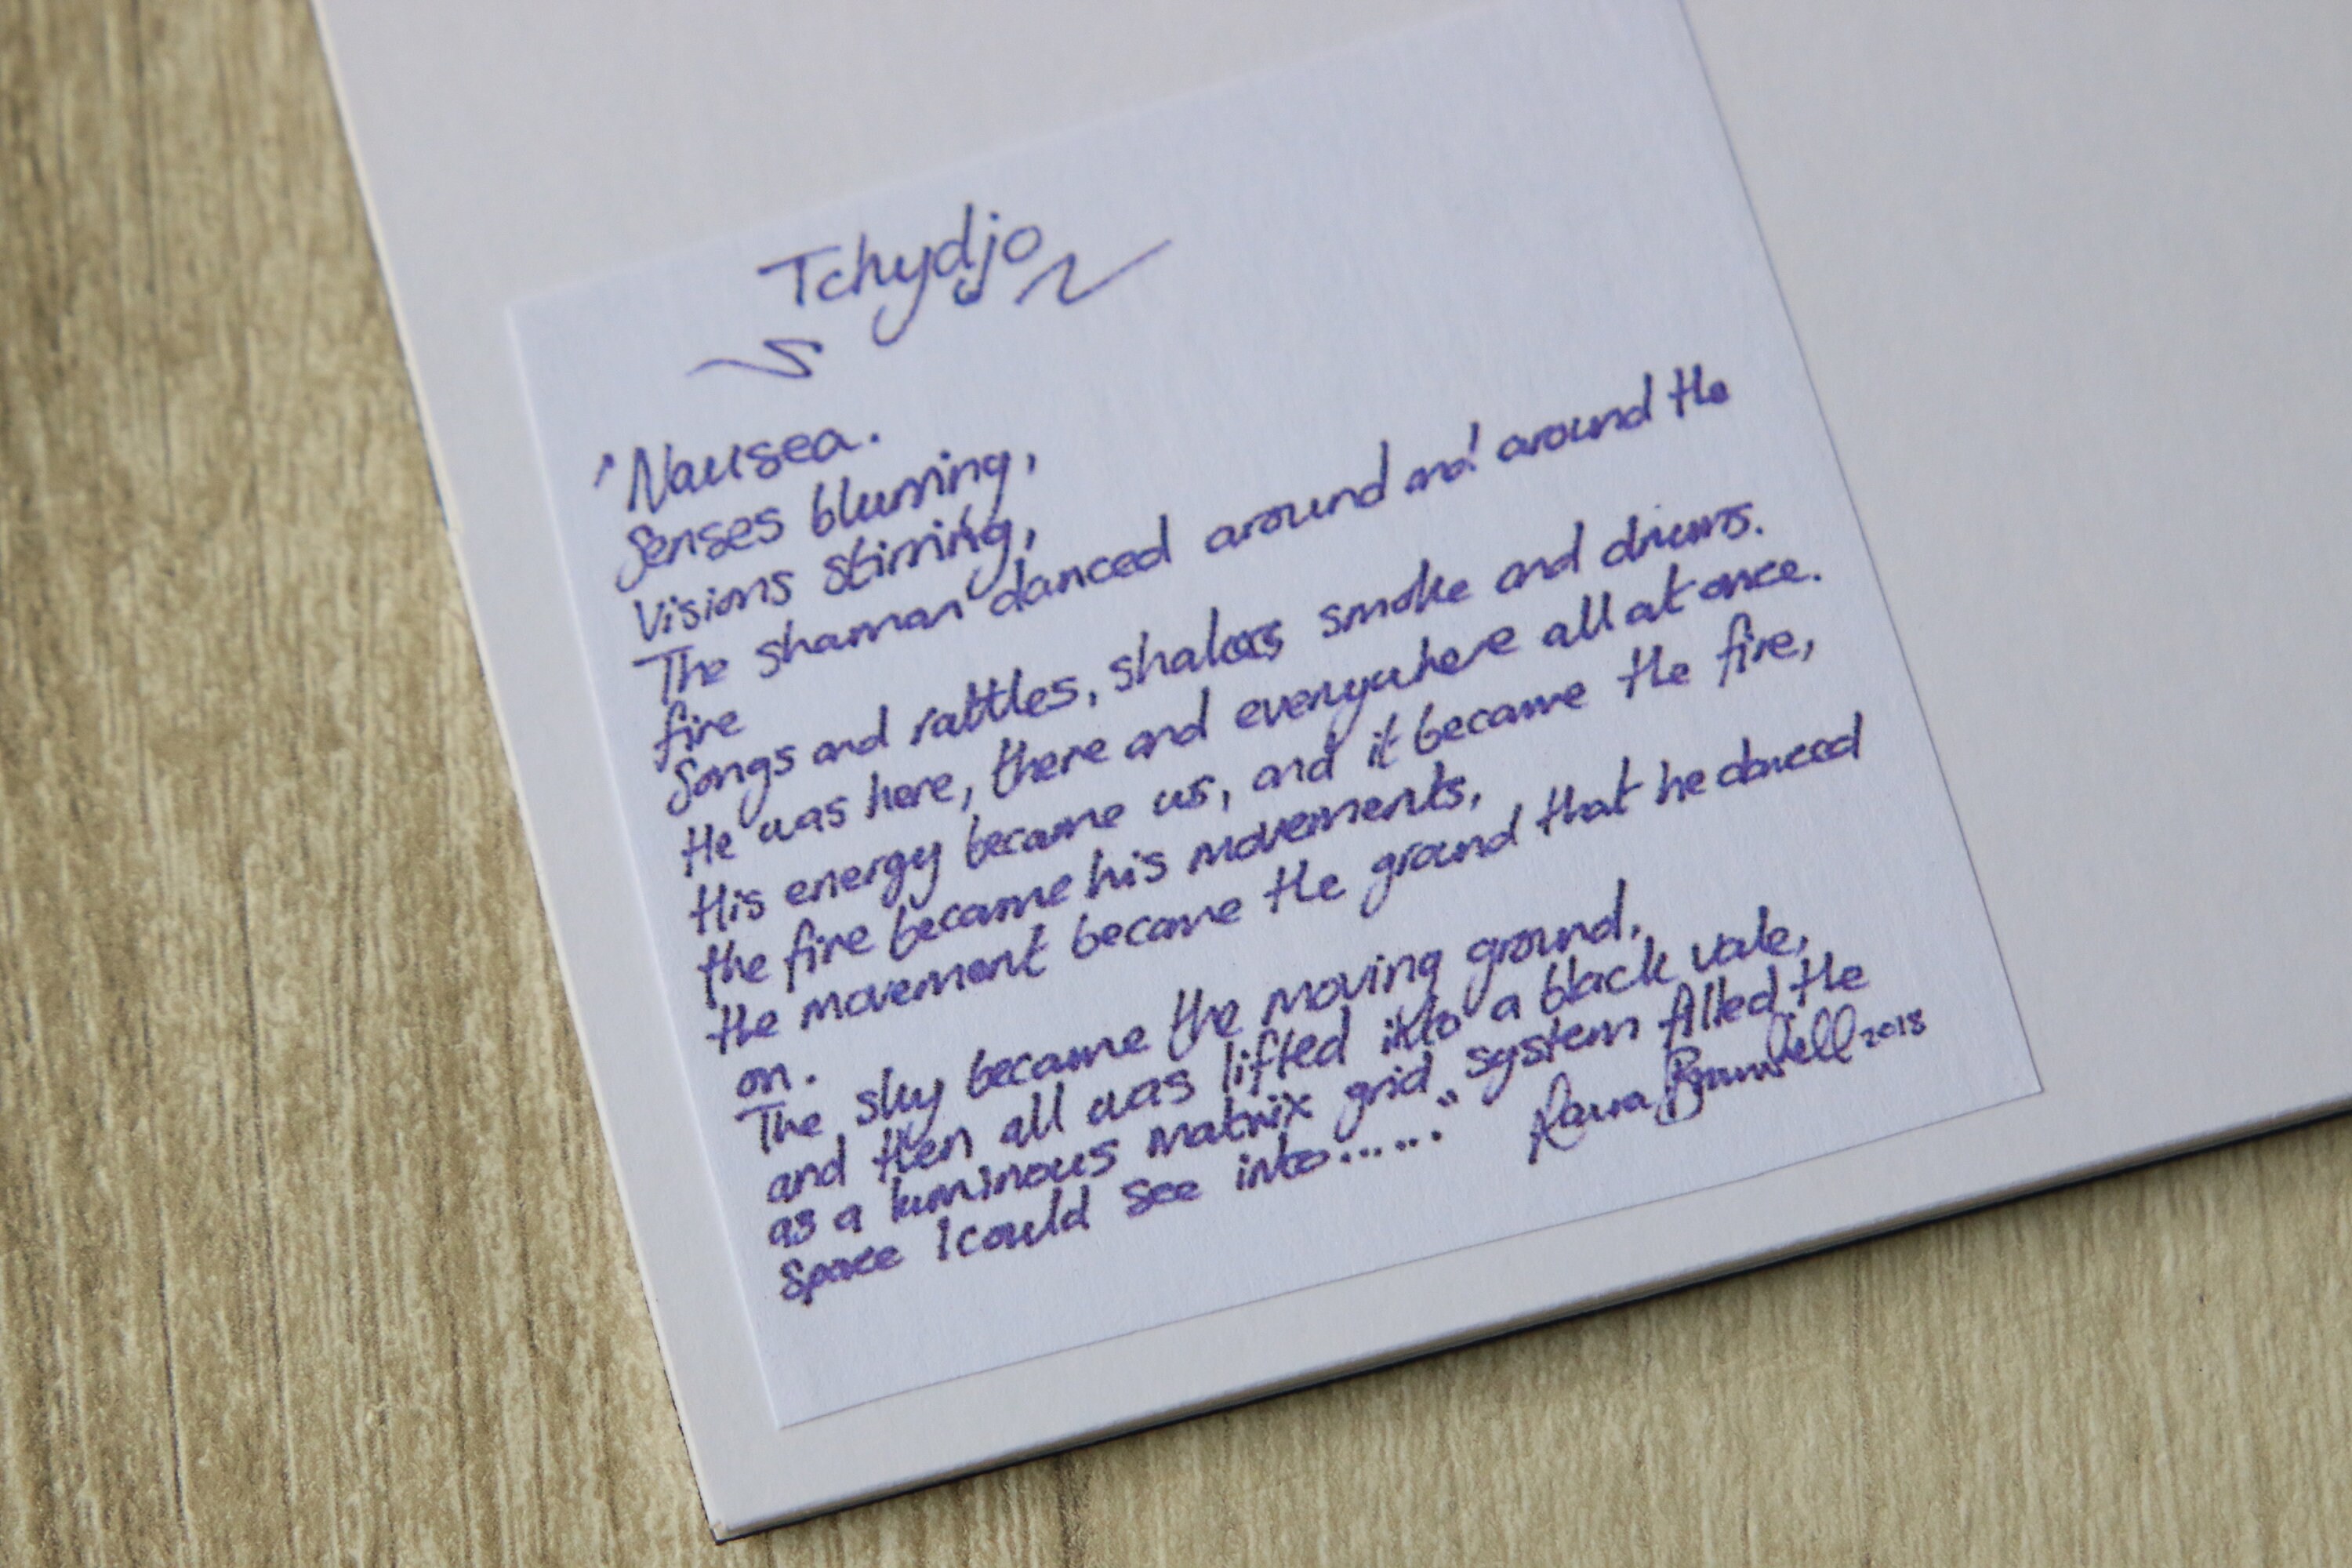 Tchydjo
'Nausea.
Senses blurring,
Visions stirring,
The shaman danced around and around the
fire
Songs and rattles, shakers smoke and drums.
He was here, there and everywhere all at once.
His energy became us, and it became the fire,
the fire became his movements,
the movement became the ground that he danced
on.
The sky became the moving ground,
and then all was lifted into a black vale,
as a luminous matrix grid system filled the
Space I could see into......"
Bramwell 2018